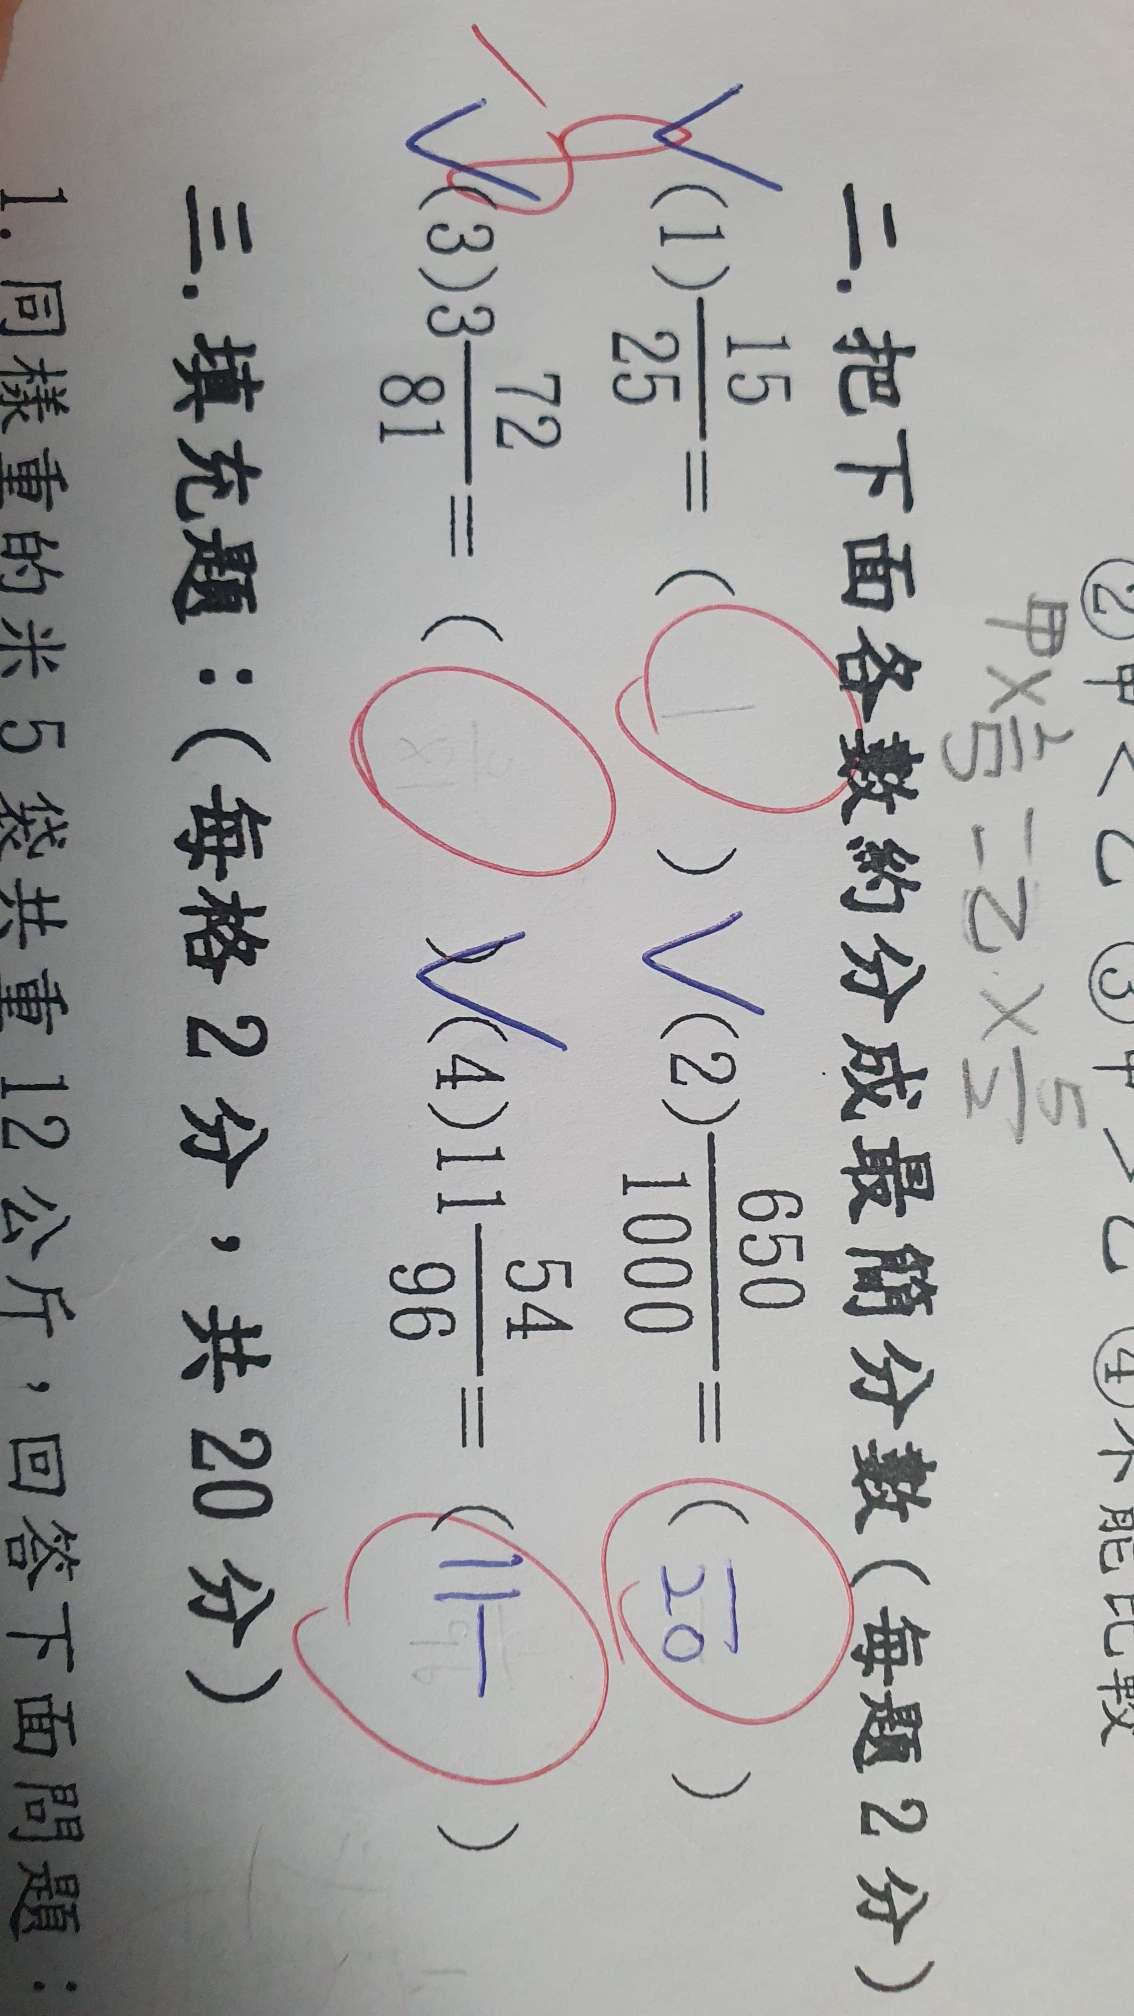 ②甲<乙 ③甲>乙 ④不能比較
甲×1/5=乙×5/2
二.把下面各數約分成最簡分數(每題2分)
(1) 15/25 = ( ) (2) 650/1000 = ( /20 )
(3) 3 72/81 = ( ) (4) 11 54/96 = ( 11 )
三.填充題:(每格2分,共20分)
1.同樣重的米5袋共重12公斤,回答下面問題: